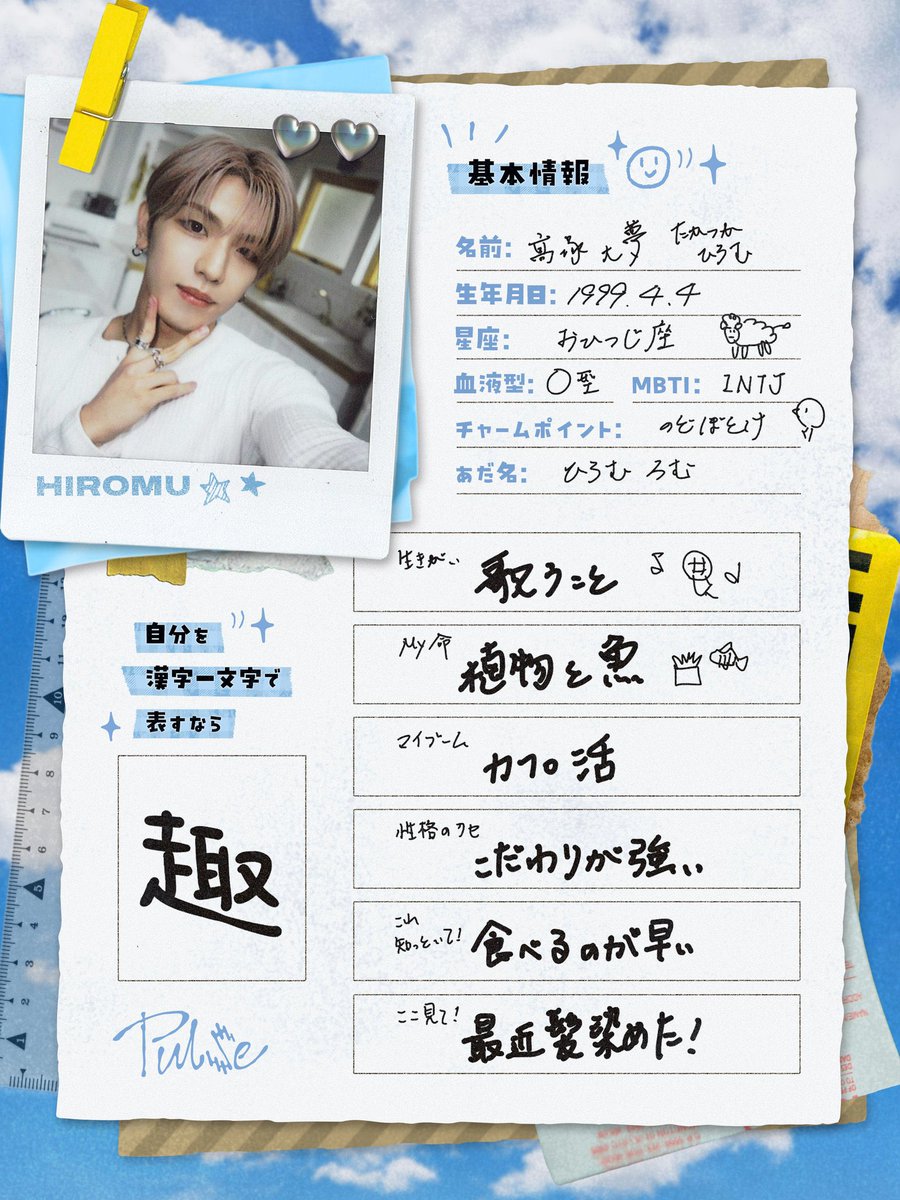 HIROMU
基本情報
名前: 髙塚大夢 たかつか ひろむ
生年月日: 1999.4.4
星座: おひつじ座
血液型: O型 MBTI: INTJ
チャームポイント: のどぼとけ
あだ名: ひろむ ろむ
自分を
漢字一文字で
表すなら
趣
Pulse
生きがい
歌うこと
My命
植物と魚
マイブーム
カプ活
性格のクセ
こだわりが強い
これ
知っといて!
食べるのが早い
ここ見て!
最近髪染めた!